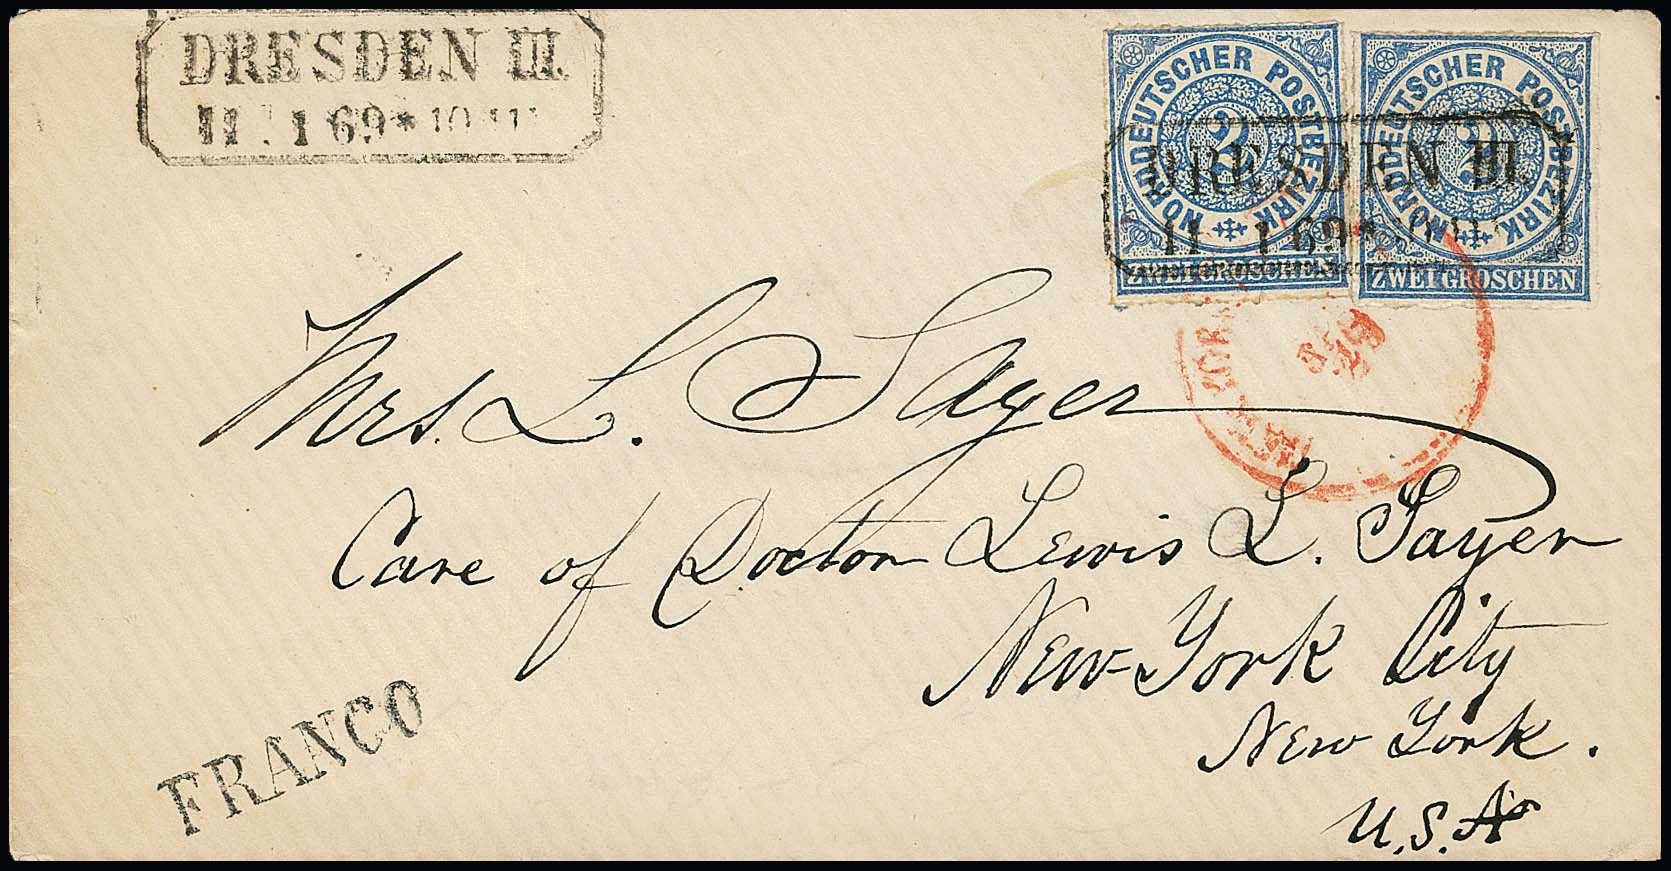 DRESDEN III.
11 . 1 69 * 10
NORDDEUTSCHER POSTBEZIRK
2
ZWEI GROSCHEN
NORDDEUTSCHER POSTBEZIRK
2
ZWEI GROSCHEN
DRESDEN III.
11 1 69 *
Mrs. L. Sayer
Care of Doctor Lewis L. Sayer
New-York City
New York.
U.S.A
FRANCO